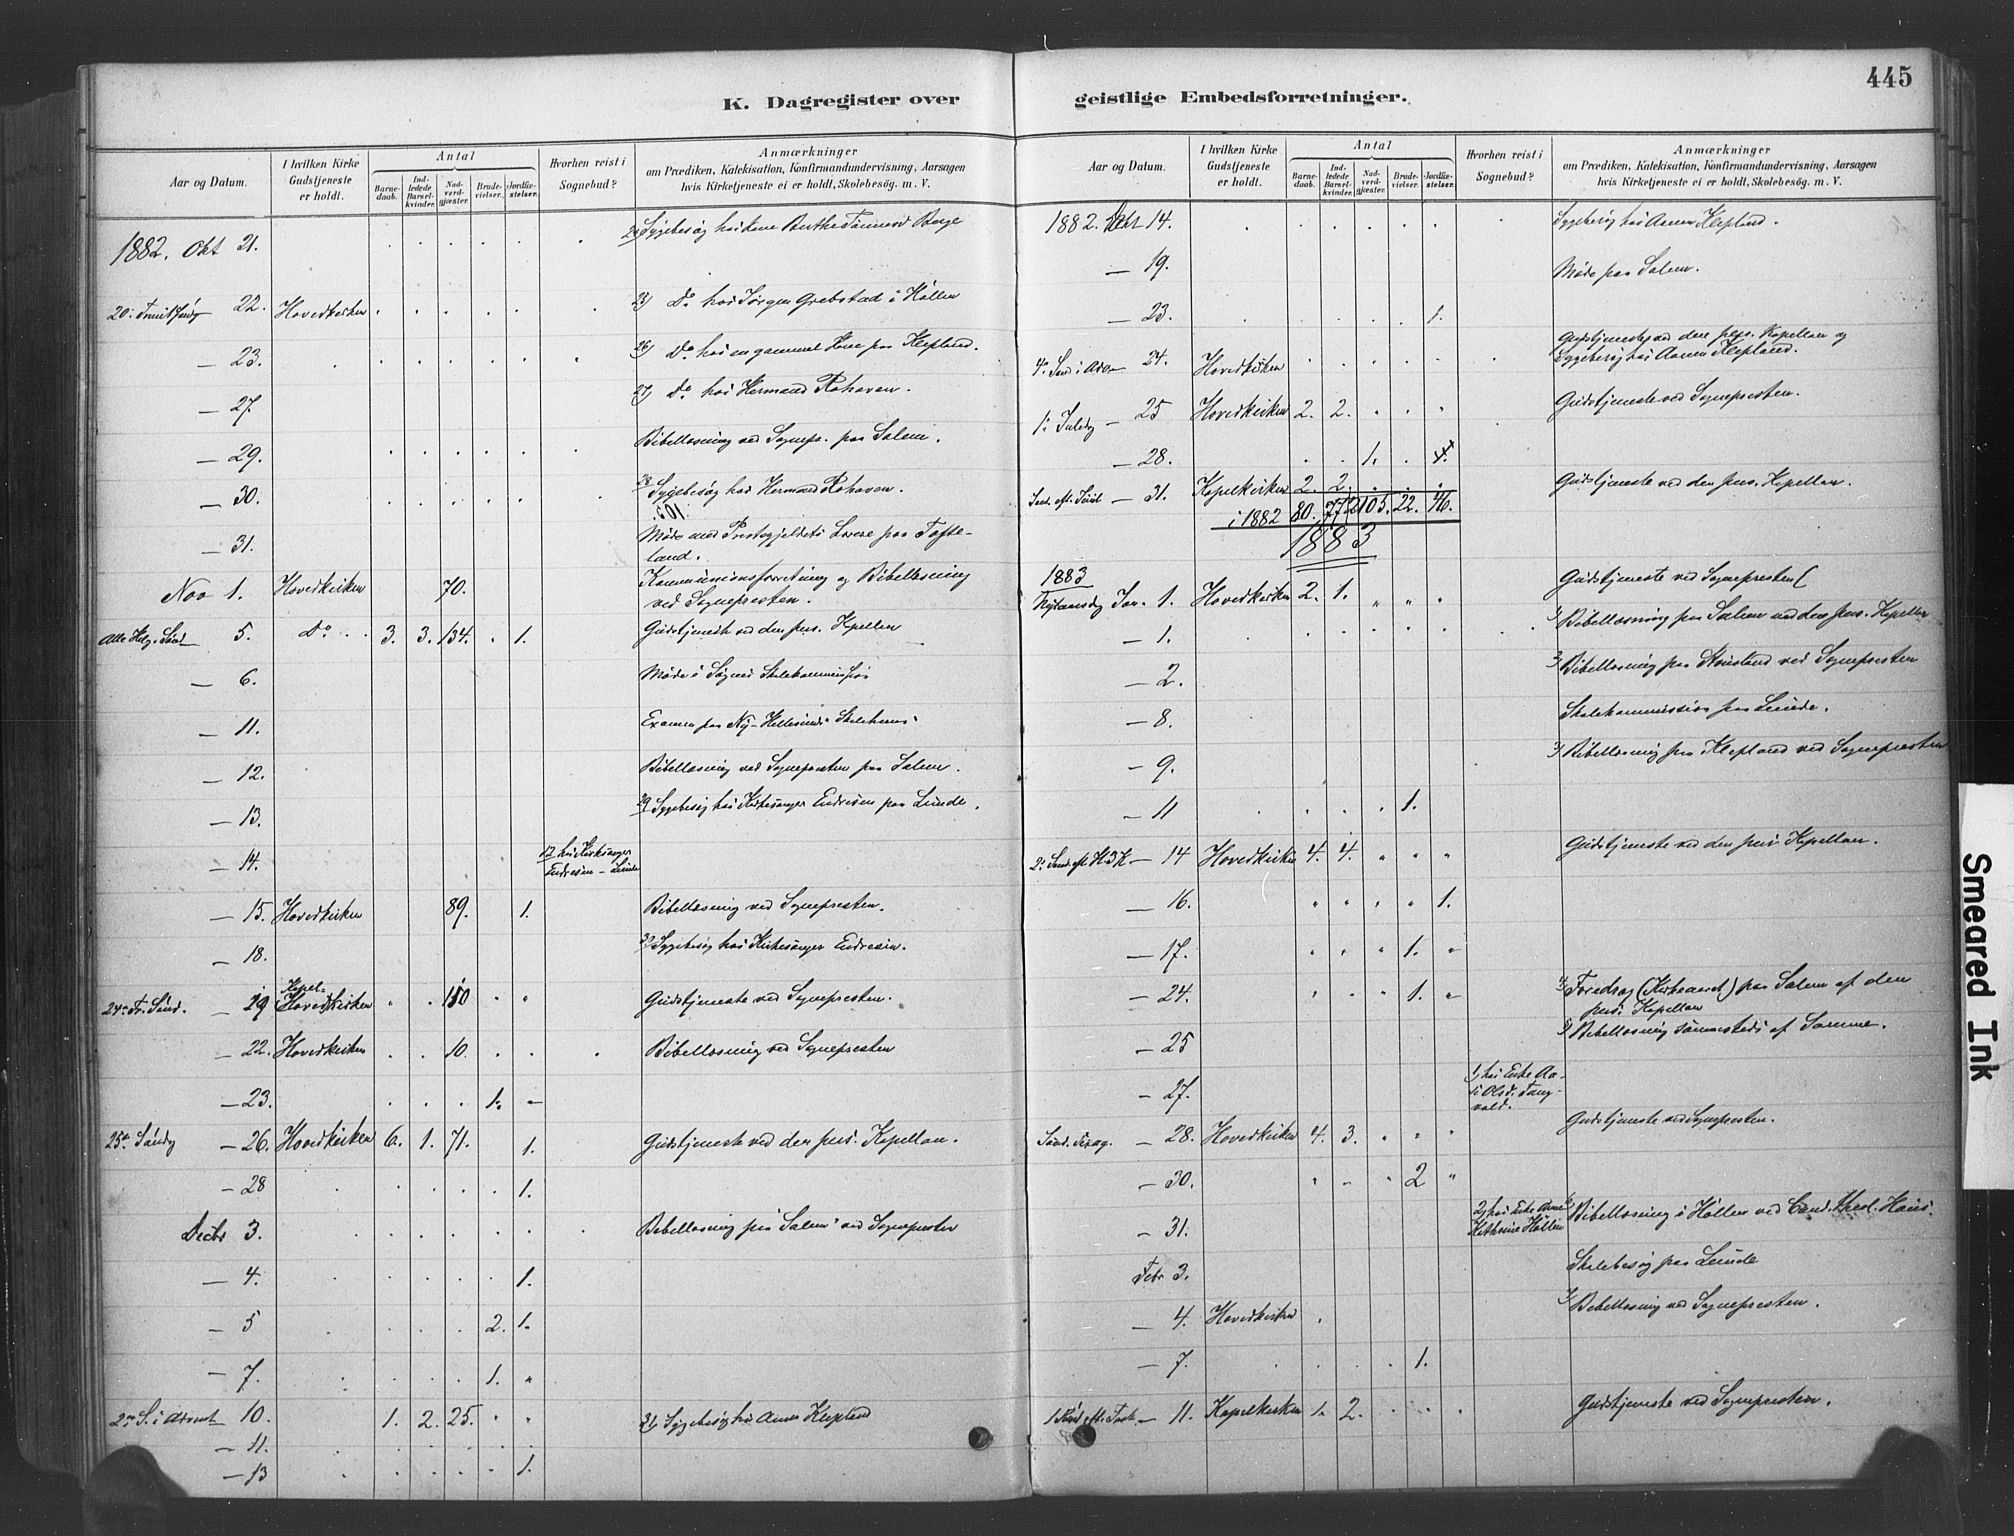 K. Dagregister over geistlige Embedsforretninger.
445
Aar og Datum.
I hvilken Kirke Gudstjeneste er holdt.
Antal
Barne-daab.
Ind-ledede Barsel-kvinder.
Nad-verd-gjæster.
Brude-vielser.
Jordfæ-stelser.
Hvorhen reist i Sognebud?
Anmærkninger
om Prædiken, Katekisation, Konfirmandundervisning, Aarsagen
hvis Kirketjeneste ei er holdt, Skolebesög. m. V.
1882. Okt 21. Sygebesög hos
22. Hovedkirken 25) Do hos Jörgen Grebstad i Höllen
— 23. 26) Do hos en gammel Kone paa Klepland.
— 27. 27) Do hos Hermand Rohaven.
— 29. Bibellæsning ved Sognepr. paa Salem.
— 30. 28 Sygebesög hos Hermand Rohaven.
— 31. Möde med Præstegjeldets Lærere paa Tofte-
land.
Nov 1. Hovedkirken 70. Kommunionsforretning og Bibellæsning
ved Sognepresten.
Alle Helg. Sönd 5. Do 3. 3. 134. 1. Gudstjeneste ved den pers. Kapellan
— 6. Möde i Sögne Skolekommission
— 11. Examen paa Ny-Hellesunds
— 12. Bibellæsning ved Sognepresten paa Salem.
— 13. 29 Sygebesög hos Kirkesanger Endresen paa Lunde.
— 14. 12 hos Kirkesanger
Endresen — Lunde
— 15. Hovedkirken 89. 1. Bibellæsning ved Sognepresten.
— 18. Sygebesög hos Kirkesanger Endresen.
24de Tr. Sönd. — 19 Kapel-
Hovedkirken 150 Gudstjeneste ved Sognepresten.
— 22. Hovedkirken 10. Bibellæsning ved Sognepresten
— 23. 1. —
25de Söndg — 26. Hovedkirken 6. 1. 71. 1. Gudstjeneste ved den pers. Kapellan.
— 28 1.
Decbr 3. Bibellæsning paa Salem ved Sognepresten
— 4. 1.
— 5 2. 1.
— 7. 1.
2den S. i Advent 10. 1. 2. 25. 31) Sygebesög hos Anna Klepland
— 11.
— 13 1.
Aar og Datum.
I hvilken Kirke Gudstjeneste er holdt.
Antal
Barne-daab.
Ind-ledede Barsel-kvinder.
Nad-verd-gjæster.
Brude-vielser.
Jordfæ-stelser.
Hvorhen reist i Sognebud?
Anmærkninger
om Prædiken, Katekisation, Konfirmandundervisning, Aarsagen
hvis Kirketjeneste ei er holdt, Skolebesög. m. V.
1882. 14. Sygebesög hos Anna Klepland.
— 19. Möde paa Salem.
— 23. 1.
4de Sönd i Adv — 24. Hovedkirken Gudstjeneste ved den pers. Kapellan og
Sygebesög hos Anna Klepland.
1ste Juledg — 25 Hovedkirken 2. 2. Gudstjeneste ved Sognepresten.
— 28. 1.
Sönd. eft. Juul — 31. Kapelkirken 2. 2. Gudstjeneste ved den pers. Kapellan.
i 1882 80. 77. 2105. 22. 46.
1883
1883
Nytaarsdg Jan. 1. Hovedkirken 2. 1. Gudstjeneste ved Sognepresten
— 1. 1) Bibellæsning paa Salem ved den pers. Kapellan
— 2. 2) Bibellæsning paa ved Sognepresten
— 8. Skolekommission paa Lunde.
— 9. 3) Bibellæsning paa Klepland ved Sognepresten
— 11 1.
2de Sönd. eft H3K — 14 Hovedkirken 4. 4. Gudstjeneste ved den pers. Kapellan.
— 16. 1.
— 17. 1.
— 24. 1. 4) Foredrag paa Salem af den
pers. Kapellan
— 25 5) Bibellæsning sammesteds af Samme.
— 27. 1) hos Enke
Olsd. Tang-
vald.
— 28. Hovedkirken 4. 3. Gudstjeneste ved Sognepresten.
— 30. 2
— 31. 2) hos Enke Anne
Kathrine Höllen Bibellæsning i Höllen ved Cand. theol.
Febr 3. Skolebesög paa Lunde
— 4. Hovedkirken Bibellæsning ved Sognepresten.
— 7. 1.
1 Sönd eft. Fast. — 11. Kapelkirken 1. 2. Gudstjeneste ved Sognepresten.
Smeared Ink